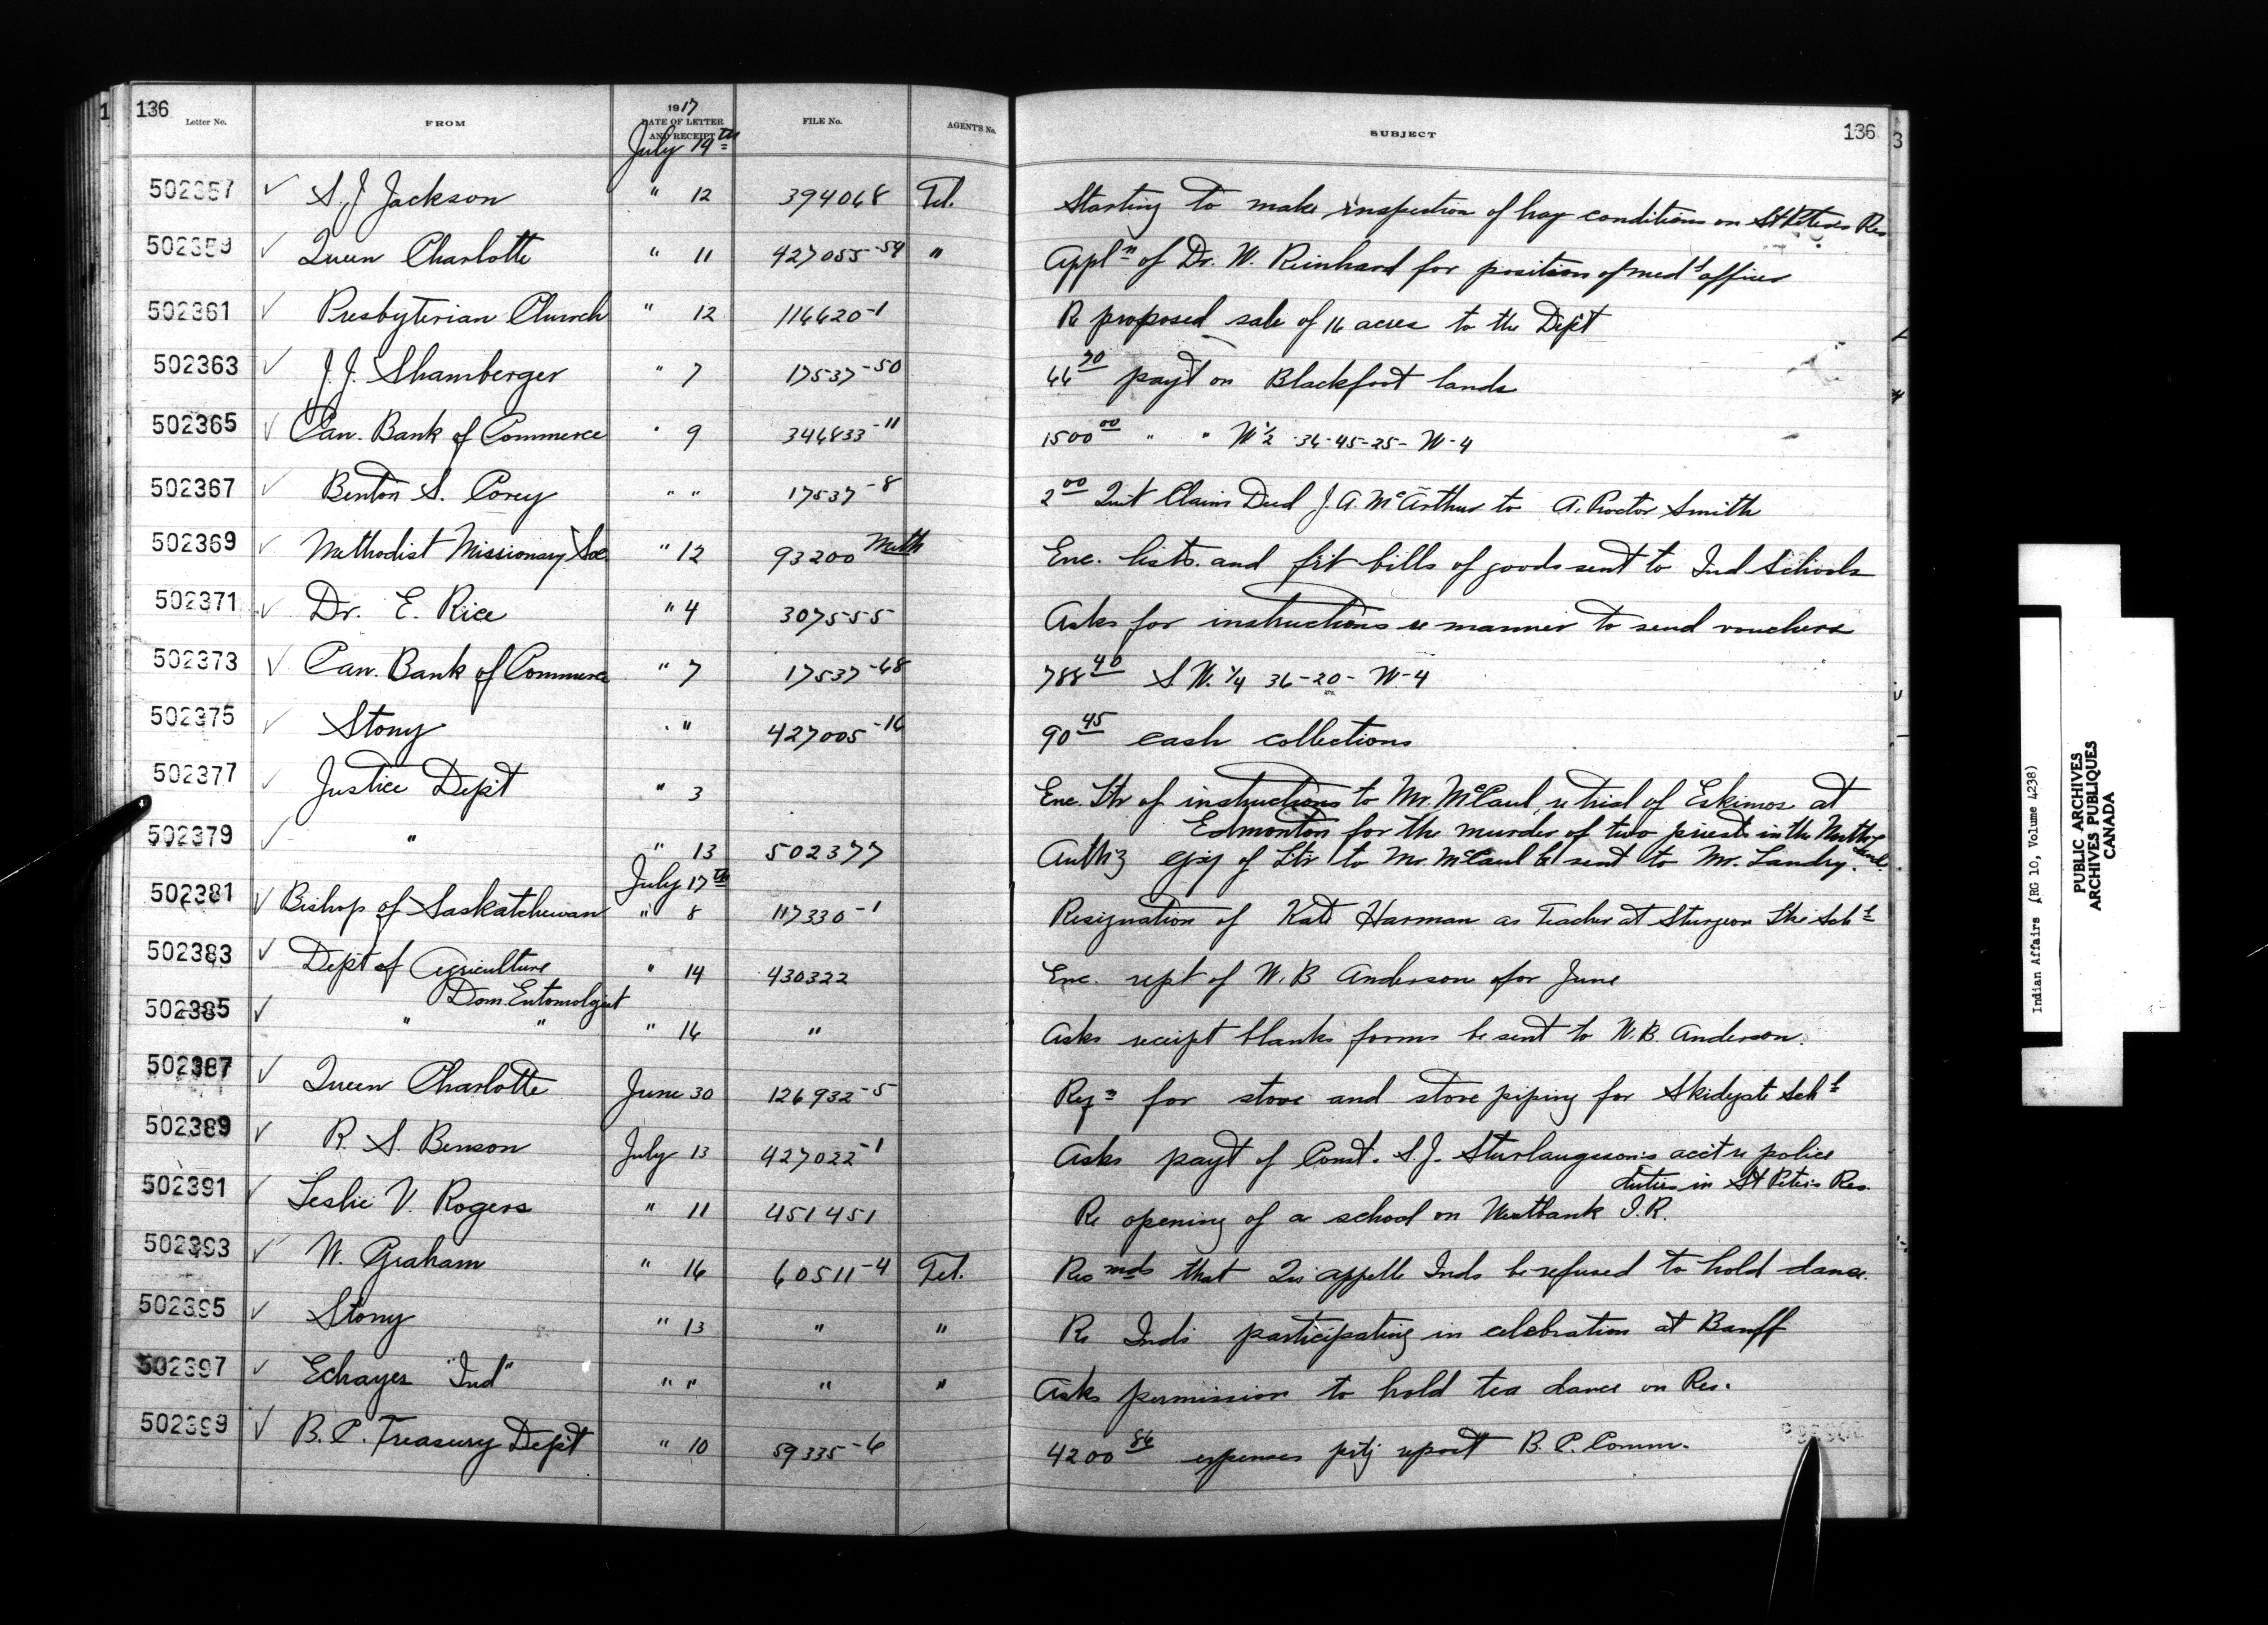 136
Letter No. FROM 1917 DATE OF LETTER AND RECEIPT FILE No. AGENT'S No. SUBJECT 136
July 14th
502357 ✓ S. J Jackson " 12 394068 Tel. Starting to make inspection of hay conditions on St Peters Res
502359 ✓ Queen Charlotte " 11 427055-54 " Appln of Dr. W. Reinhard for position of medl officer
502361 ✓ Presbyterian Church " 12 116620-1 Re proposed sale of 16 acres to the Dept
502363 ✓ J. J. Shamberger " 7 17537-50 6670 payt on Blackfoot lands
502365 ✓ Can. Bank of Commerce " 9 346833-11 150000 " " W ½ 36-45-25- W-4
502367 ✓ Benton S. Corey " " 17537-8 200 Quit Claim Deed J. A. McArthur to A. Proctor Smith
502369 ✓ Methodist Missionary Soc " 12 93200 Meth Enc. lists and frt bills of goods sent to Ind Schools
502371 ✓ Dr. E. Rice " 4 307555 Asks for instructions re manner to send vouchers
502373 ✓ Can. Bank of Commerce " 7 17537-68 78840 S W. ¼ 36-20- W-4
502375 ✓ Stony " " 427005-16 9045 cash collections
502377 ✓ Justice Dept " 3 Enc. Ltr of instructions to Mr. McCaul re trial of Eskimos at
Edmonton for the murder of two priests in the North Land
502379 ✓ " " 13 502377 Auth'z copy of Ltr to Mr. McCaul be sent to Mr. Landry.
July 17th
502381 ✓ Bishop of Saskatchewan " 8 117330-1 Resignation of Kate Harman as Teacher at Sturgeon Lke Schl
502383 ✓ Dept of Agriculture " 14 430322 Enc. rept of W. B Anderson for June
Dom. Entomolgist
502385 ✓ " " " 14 " Asks receipt blanks forms be sent to W. B. Anderson.
502387 ✓ Queen Charlotte June 30 126932-5 Reqn for stove and stove piping for Skidegate Schl
502389 ✓ R. S. Benson July 13 427022-1 Asks payt of Const. S. J. Sturlaugson's acct re police
duties in St Peter's Res.
502391 ✓ Leslie V. Rogers " 11 451451 Re opening of a school on Westbank I. R.
502393 ✓ W. Graham " 16 60511-4 Tel. Recmds that Qu'appelle Inds be refused to hold dance.
502395 ✓ Stony " 13 " " Re Inds participating in celebration at Banff
502397 ✓ Echayes "Ind" " " " " Asks permission to hold tea dance on Res.
502399 ✓ B. C. Treasury Dept " 10 59335-6 420086 expenses prtg report B. C. Comm.
Indian Affairs (RG 10, Volume 4238)
PUBLIC ARCHIVES
ARCHIVES PUBLIQUES
CANADA